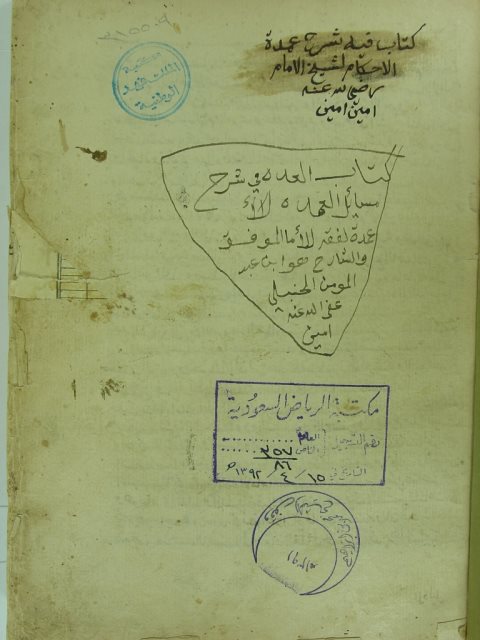 كتاب فيه شرح عمدة
الاحكام لشيخ الامام
رضي الله عنه
امين امين
كتاب العده في شرح
مسايل العمده
عمدة لفقه للأمام الموفق
والشارح هوا بن عبد
المومن الحنبلي
عفى الله عنه
امين
مكتبة الملك فهد
الوطنية
مكتبة الرياض السعودية
رقم التسجيل العام
الخاص ٣٥٧
٨٦
التاريخ في ١٥ / ٤ / ١٣٩٢ هـ